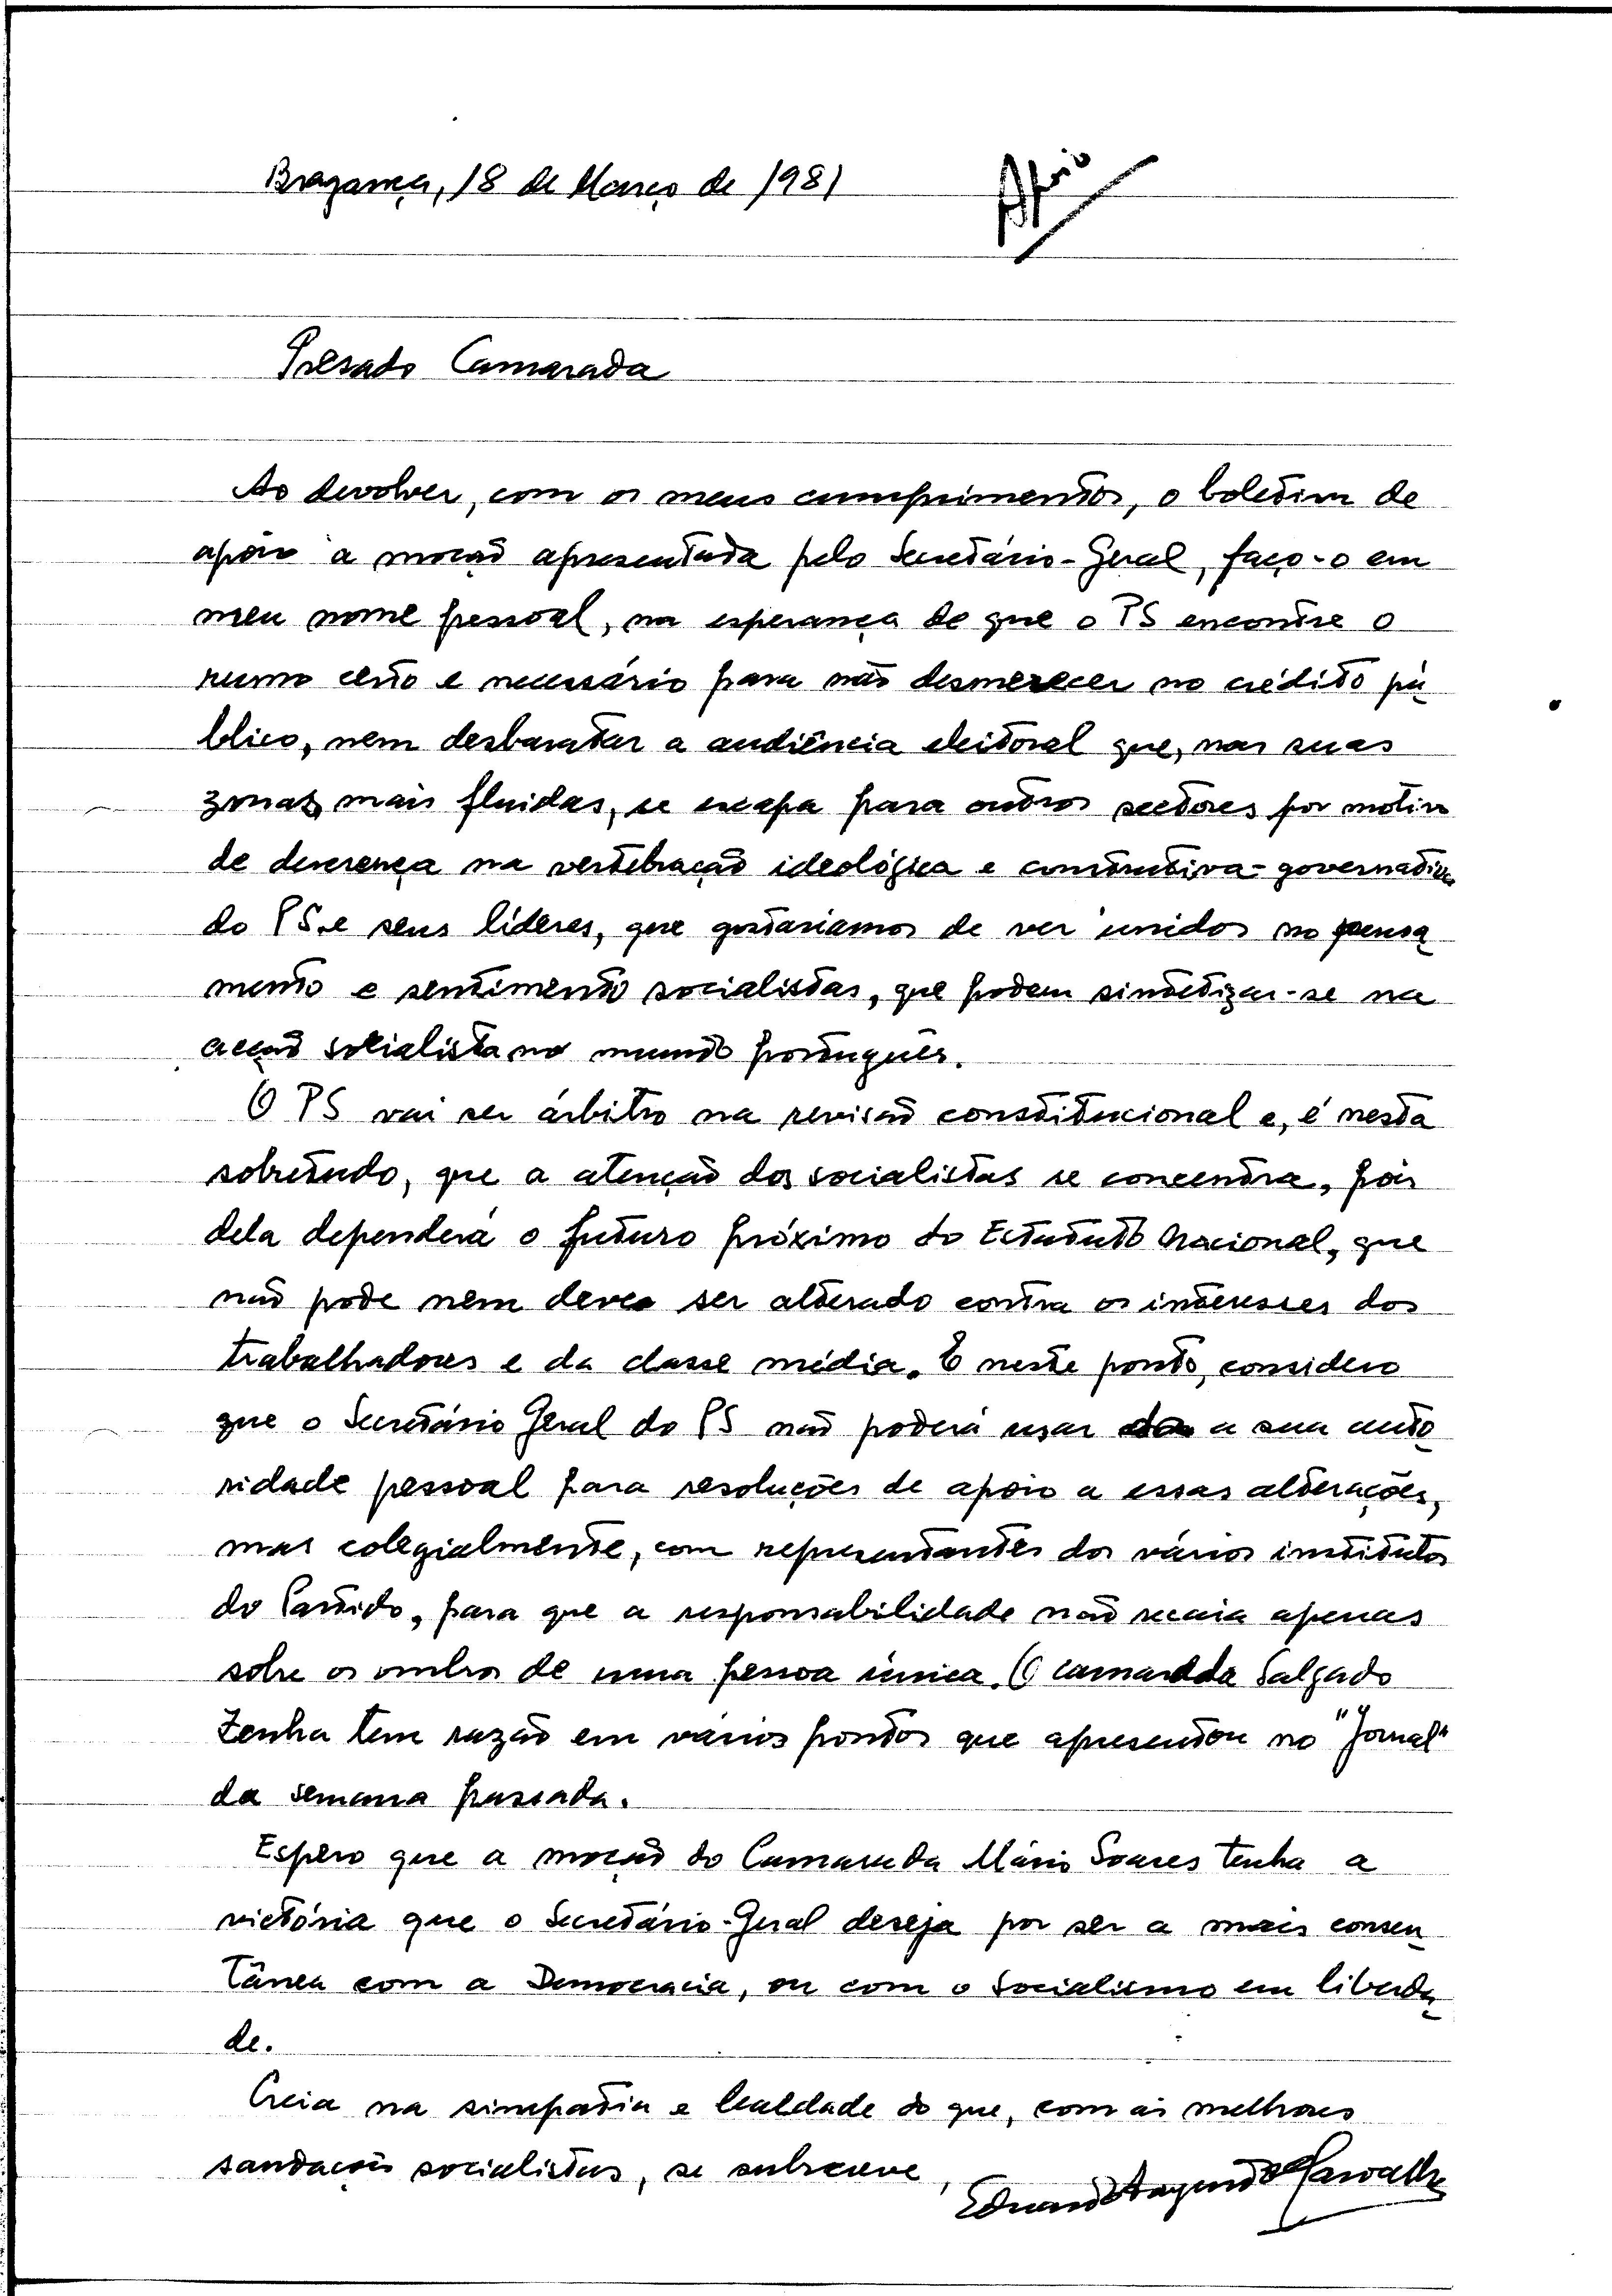 Bragança, 18 de Março de 1981
Apoio
Presado Camarada
Ao devolver, com os meus cumprimentos, o boletim de
apoio à moção apresentada pelo Secretário-Geral, faço-o em
meu nome pessoal, na esperança de que o PS encontre o
rumo certo e necessário para não desmerecer no crédito pú
blico, nem desbaratar a audiência eleitoral que, nas suas
zonas mais fluidas, se escapa para outros sectores por motivo
de descrença na vertebração ideológica e construtiva-governativa
do PS e seus líderes, que gostariamos de ver unidos no pensa
mento e sentimento socialistas, que podem sintetizar-se na
acção socialista no mundo português.
O PS vai ser árbitro na revisão constitucional e, é nesta
sobretudo, que a atenção dos socialistas se concentra, pois
dela dependerá o futuro próximo do Estatuto Nacional, que
não pode nem deve ser alterado contra os interesses dos
trabalhadores e da classe média. E neste ponto, considero
que o Secretário Geral do PS não poderá usar a sua auto
ridade pessoal para resoluções de apoio a essas alterações,
mas colegialmente, com representantes dos vários institutos
do Partido, para que a responsabilidade não recaia apenas
sobre os ombros de uma pessoa única. O camarada Salgado
Zenha tem razão em vários pontos que apresentou no "Jornal"
da semana passada.
Espero que a moção do Camarada Mário Soares tenha a
victória que o Secretário-Geral deseja por ser a mais consen
tânea com a Democracia, ou com o Socialismo em liberda
de.
Creia na simpatia e lealdade do que, com as melhores
saudações socialistas, se subscreve,
Eduardo Carvalho